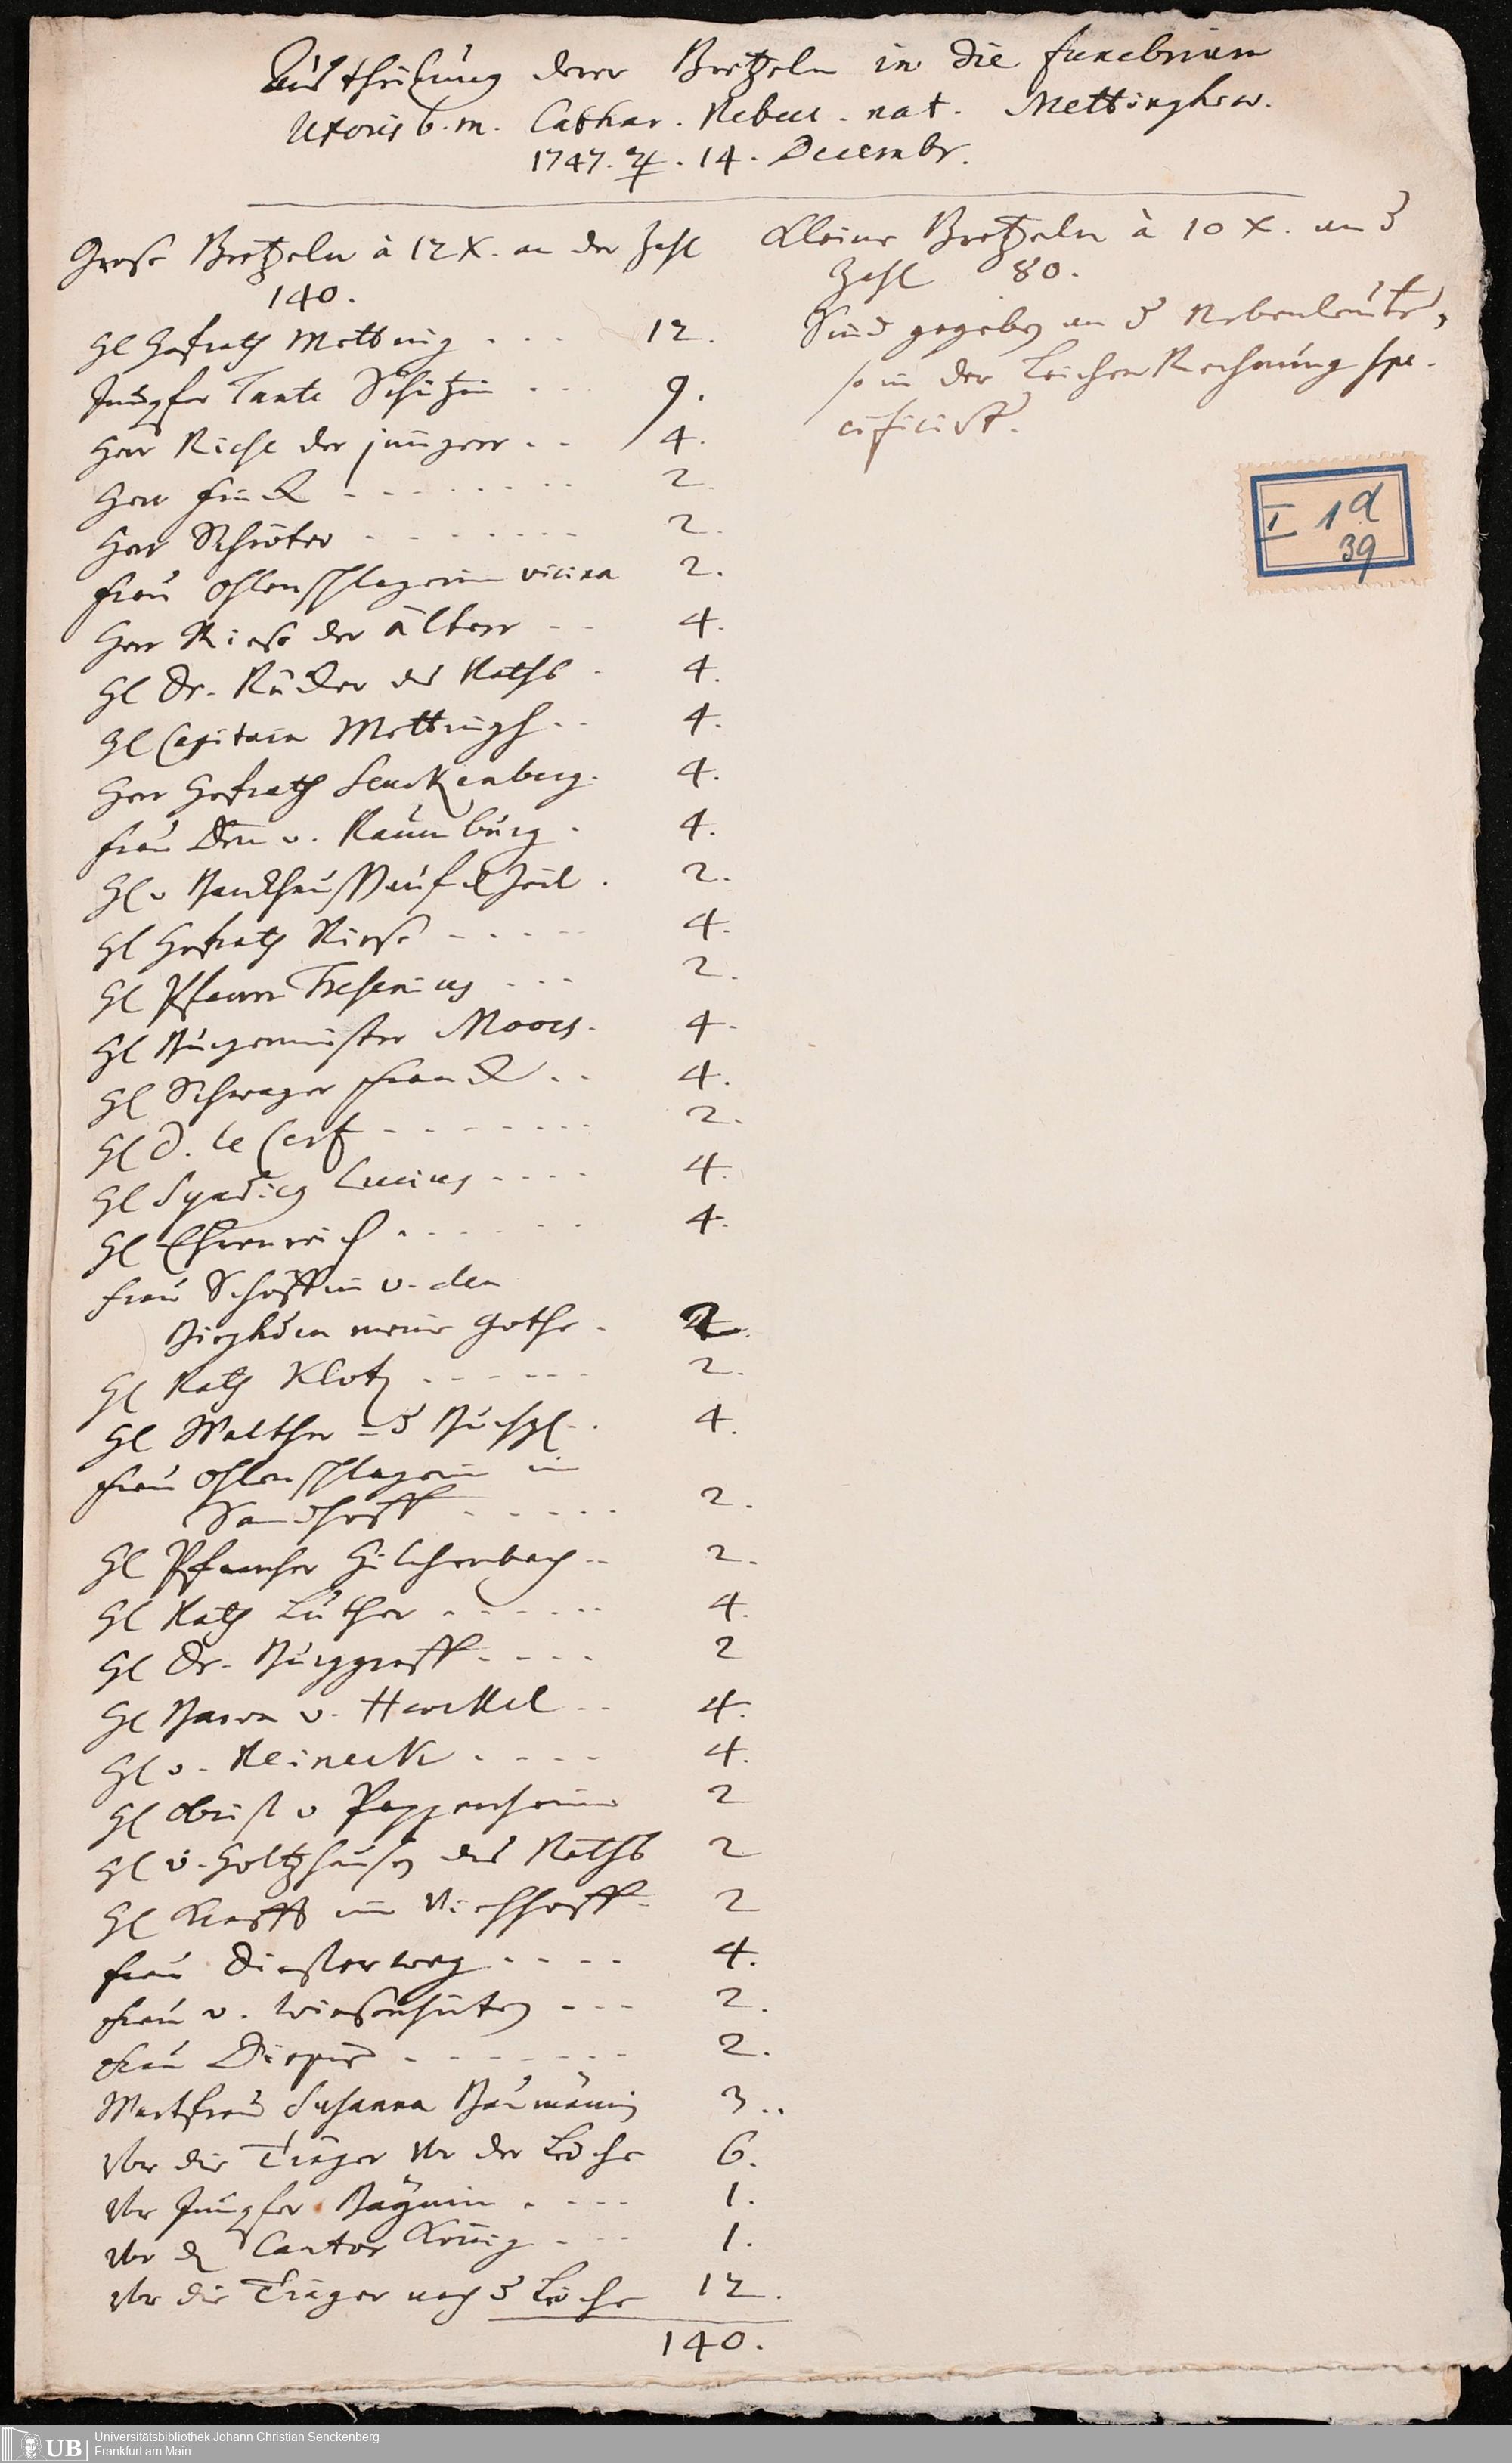 Austheilung derer Bretzeln in die funebrium
Uxoris b. m. Cathar. Rebecc. nat. Mettinghiae.
1747. ♃. 14. Decembr.
Große Bretzeln à 12 X. an der Zahl
140.
Hl Hofrath Metting . . . 12.
Jungfer Tante Schützin . . 9.
Herr Riese der jüngere . . 4.
Herr Finck . . . 2.
Herr Schröter . . . 2.
Frau Ohlenschlagerin vicina 2.
Herr Riese der ältere . . 4.
Hl Dr. Rücker des Raths . 4.
Hl Capitain Mettingh . . 4.
Herr Hofrath Senckenberg. 4.
Frau v. Naumburg . 4.
Hl v Backhauß auf d Zeil . 2.
Hl Hofrath Riese . . . 4.
Hl Pfarrer Fresenius . . . 2.
Hl Burgermeister Moors. 4.
Hl Schwager Franck . . 4.
Hl D. le Cerf . . . 2.
Hl Syndicus Lucius . . . 4.
Hl Ehrenreich . . . 4.
Frau Schöffin v. den
Birghden meine Gothe . 2.
Hl Rath Klotz . . . 2.
Hl Walther 4.
Frau Ohlenschlagerin im
Sandhoff . . . 2.
Hl Pfarrher Hilchenbach . . 2.
Hl Rath Luther . . . 4.
Hl Dr. Burggraff . . . 2
Hl Baron v. Haeckel . . 4.
Hl v. Reineck . . . 4.
Hl Obrist v Pappenheim 2
Hl v. Holtzhausen des Raths 2
Hl Krafft im Viehhoff . 2
Frau Diesterweg . . . 4.
Frau v. Wiesenhüten . . . 2.
Frau 2.
Wartfrau Susanna Baumännin 3..
Vor die Träger vor der Leiche 6.
Vor Jungfer 1.
Vor d Cantor König . . 1.
Vor die Träger nach d Leiche 12.
140.
Kleine Bretzeln à 10 X. an d
Zahl 80.
Sind gegeben an d Nebenleute,
so in der Leichen Rechnung spe-
cificirt.
I 1 d
39
UB
Universitätsbibliothek Johann Christian Senckenberg
Frankfurt am Main